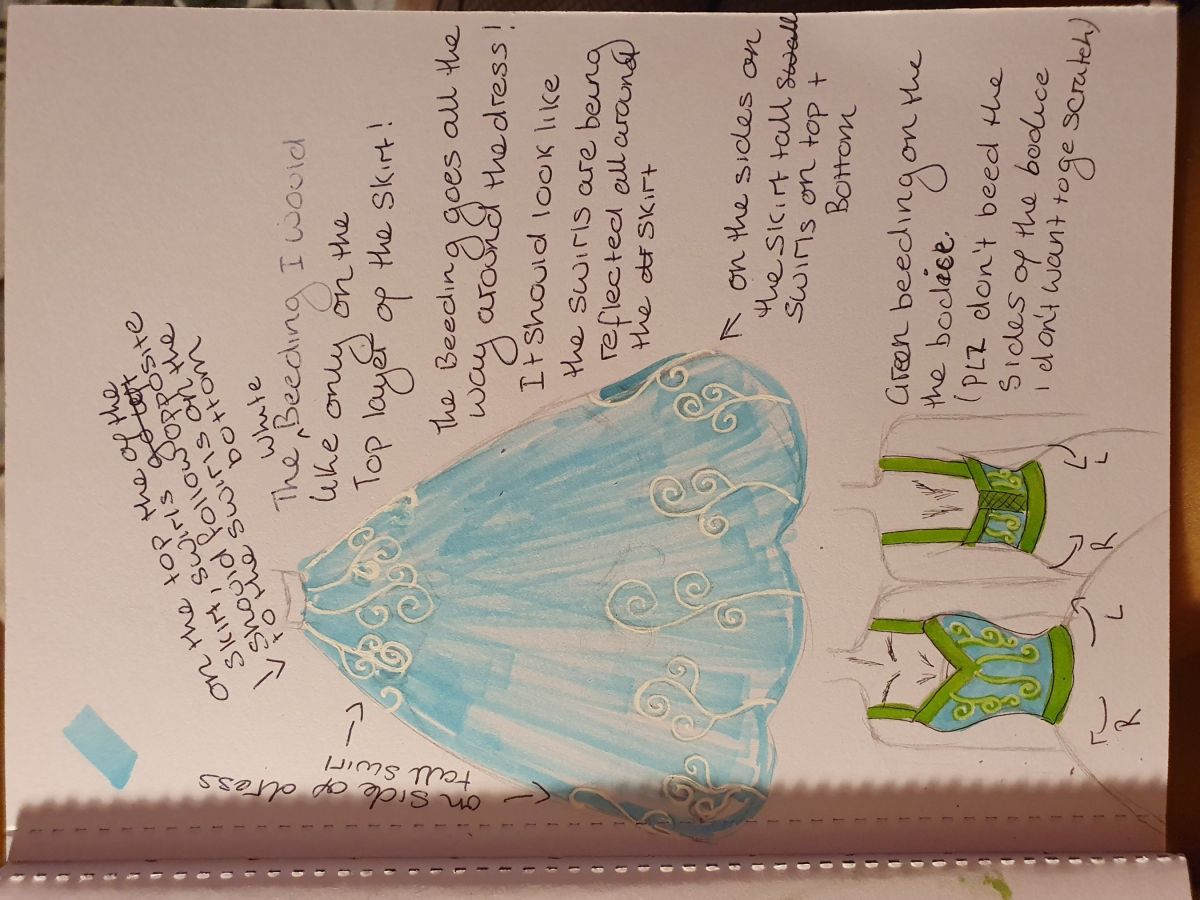 on the top of the
skirt, swirls opposite
should follow on the
to the swirls bottom
white
The Beeding I would
like only on the
Top layer of the skirt!
the Beeding goes all the
way around the dress!
It should look like
the swirls are being
reflected all around
the skirt
on the sides on
the skirt tall
swirls on top +
Bottom
on side of dress
tall swirl
Green beeding on the
the bodice.
(PLZ don't beed the
sides of the bodice
i don't want to ge scratch)
R
L
R
L